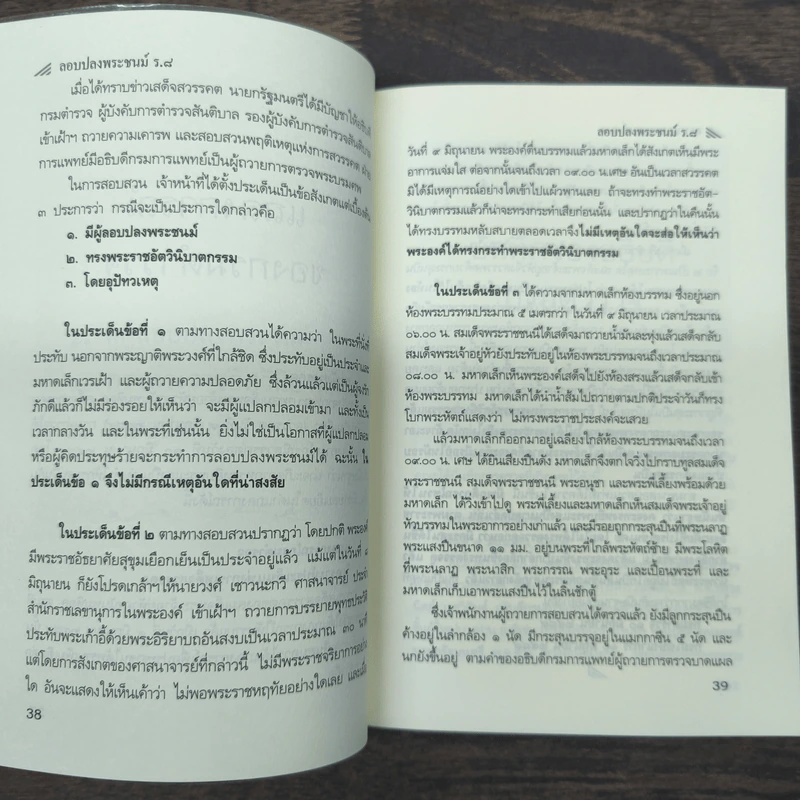 ลอบปลงพระชนม์ ร.๘
เมื่อได้ทราบข่าวเสด็จสวรรคต นายกรัฐมนตรีได้มีบัญชาให้
กรมตำรวจ ผู้บังคับการตำรวจสันติบาล รองผู้บังคับการตำรวจสันติบาล
เข้าเฝ้าฯ ถวายความเคารพ และสอบสวนพฤติเหตุแห่งการสวรรคต
การแพทย์มีอธิบดีกรมการแพทย์เป็นผู้ถวายการตรวจพระบรมศพ
ในการสอบสวน เจ้าหน้าที่ได้ตั้งประเด็นเป็นข้อสังเกตแต่เบื้องต้น
๓ ประการว่า กรณีจะเป็นประการใดกล่าวคือ
๑. มีผู้ลอบปลงพระชนม์
๒. ทรงพระราชอัตวินิบาตกรรม
๓. โดยอุปัทวเหตุ
ในประเด็นข้อที่ ๑ ตามทางสอบสวนได้ความว่า ในพระที่นั่ง
ประทับ นอกจากพระญาติพระวงศ์ที่ใกล้ชิด ซึ่งประทับอยู่เป็นประจำและ
มหาดเล็กเวรเฝ้า และผู้ถวายความปลอดภัย ซึ่งล้วนแล้วแต่เป็นผู้จงรัก
ภักดีแล้วก็ไม่มีร่องรอยให้เห็นว่า จะมีผู้แปลกปลอมเข้ามา และทั้งเป็น
เวลากลางวัน และในพระที่เช่นนั้น ยิ่งไม่ใช่เป็นโอกาสที่ผู้แปลกปลอม
หรือผู้คิดประทุษร้ายจะกระทำการลอบปลงพระชนม์ได้ ฉะนั้น ใน
ประเด็นข้อ ๑ จึงไม่มีกรณีเหตุอันใดที่น่าสงสัย
ในประเด็นข้อที่ ๒ ตามทางสอบสวนปรากฏว่า โดยปกติ พระองค์
มีพระราชอัธยาศัยสุขุมเยือกเย็นเป็นประจำอยู่แล้ว แม้แต่ในวันที่
มิถุนายน ก็ยังโปรดเกล้าฯให้นายวงศ์ เชาวนะกวี ศาสนาจารย์ ประจำ
สำนักราชเลขานุการในพระองค์ เข้าเฝ้าฯ ถวายการบรรยายพุทธประวัติ
ประทับพระเก้าอี้ด้วยพระอิริยาบถอันสงบเป็นเวลาประมาณ ๓๐ นาที
แต่โดยการสังเกตของศาสนาจารย์ที่กล่าวนี้ ไม่มีพระราชจริยาการอย่าง
ใด อันจะแสดงให้เห็นเค้าว่า ไม่พอพระราชหฤทัยอย่างใดเลย และเมื่อ
38
ลอบปลงพระชนม์ ร.๘
วันที่ ๙ มิถุนายน พระองค์ตื่นบรรทมแล้วมหาดเล็กได้สังเกตเห็นมีพระ
อาการแจ่มใส ต่อจากนั้นจนถึงเวลา ๐๙.๐๐ น.เศษ อันเป็นเวลาสวรรคต
มิได้มีเหตุการณ์อย่างใดเข้าไปแผ้วพานเลย ถ้าจะทรงทำพระราชอัต-
วินิบาตกรรมแล้วก็น่าจะทรงกระทำเสียก่อนนั้น และปรากฏว่าในคืนนั้น
ได้ทรงบรรทมหลับสบายตลอดเวลาจึงไม่มีเหตุอันใดจะส่อให้เห็นว่า
พระองค์ได้ทรงกระทำพระราชอัตวินิบาตกรรม
ในประเด็นข้อที่ ๓ ได้ความจากมหาดเล็กห้องบรรทม ซึ่งอยู่นอก
ห้องพระบรรทมประมาณ ๕ เมตรกว่า ในวันที่ ๙ มิถุนายน เวลาประมาณ
๐๖.๐๐ น. สมเด็จพระราชชนนีได้เสด็จมาถวายน้ำมันละหุ่งแล้วเสด็จกลับ
สมเด็จพระเจ้าอยู่หัวยังประทับอยู่ในห้องพระบรรทมจนถึงเวลาประมาณ
๐๘.๐๐ น. มหาดเล็กเห็นพระองค์เสด็จไปยังห้องสรงแล้วเสด็จกลับเข้า
ห้องพระบรรทม มหาดเล็กได้นำน้ำส้มไปถวายตามปกติประจำวันก็ทรง
โบกพระหัตถ์แสดงว่า ไม่ทรงพระราชประสงค์จะเสวย
แล้วมหาดเล็กก็ออกมาอยู่เฉลียงใกล้ห้องพระบรรทมจนถึงเวลา
๐๙.๐๐ น. เศษ ได้ยินเสียงปืนดัง มหาดเล็กจึงตกใจวิ่งไปกราบทูลสมเด็จ
พระราชชนนี สมเด็จพระราชชนนี พระอนุชา และพระพี่เลี้ยงพร้อมด้วย
มหาดเล็ก ได้วิ่งเข้าไปดู พระพี่เลี้ยงและมหาดเล็กเห็นสมเด็จพระเจ้าอยู่
หัวบรรทมในพระอาการอย่างเก่าแล้ว และมีรอยถูกกระสุนปืนที่พระนลาฏ
พระแสงปืนขนาด ๑๑ มม. อยู่บนพระที่ใกล้พระหัตถ์ซ้าย มีพระโลหิต
ที่พระนลาฏ พระนาสิก พระกรรณ พระอุระ และเปื้อนพระที่ และ
มหาดเล็กเก็บเอาพระแสงปืนไว้ในลิ้นชักตู้
ซึ่งเจ้าพนักงานผู้ถวายการสอบสวนได้ตรวจแล้ว ยังมีลูกกระสุนปืน
ค้างอยู่ในลำกล้อง ๑ นัด มีกระสุนบรรจุอยู่ในแมกกาซีน ๕ นัด และ
นกยังขึ้นอยู่ ตามคำของอธิบดีกรมการแพทย์ผู้ถวายการตรวจบาดแผล
39